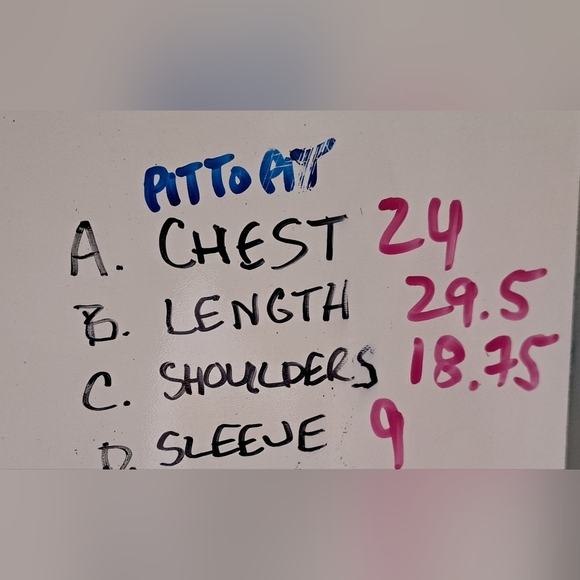 PIT TO PIT
A. CHEST 24
B. LENGTH 29.5
C. SHOULDERS 18.75
D. SLEEVE 9